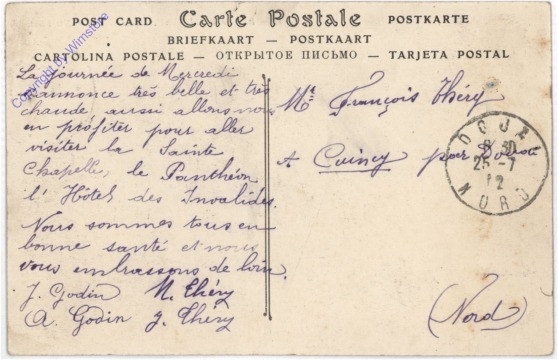 POST CARD Carte Postale POSTKARTE
BRIEFKAART — POSTKAART
CARTOLINA POSTALE — ОТКРЫТОЕ ПИСЬМО — TARJETA POSTAL
Copyright by Wimstore
La journée de Mercredi
s'annonce très belle et très
chaude aussi allons-nous
en profiter pour aller
visiter la Sainte
Chapelle, le Panthéon
l'Hôtel des Invalides.
Nous sommes tous en
bonne santé et nous
vous embrassons de loin.
J. Godin M. Théry
A. Godin J. Théry
Mr François Théry
A Cuincy par Douai
(Nord)
DOUAI
8 30
25 - 7
12
NORD